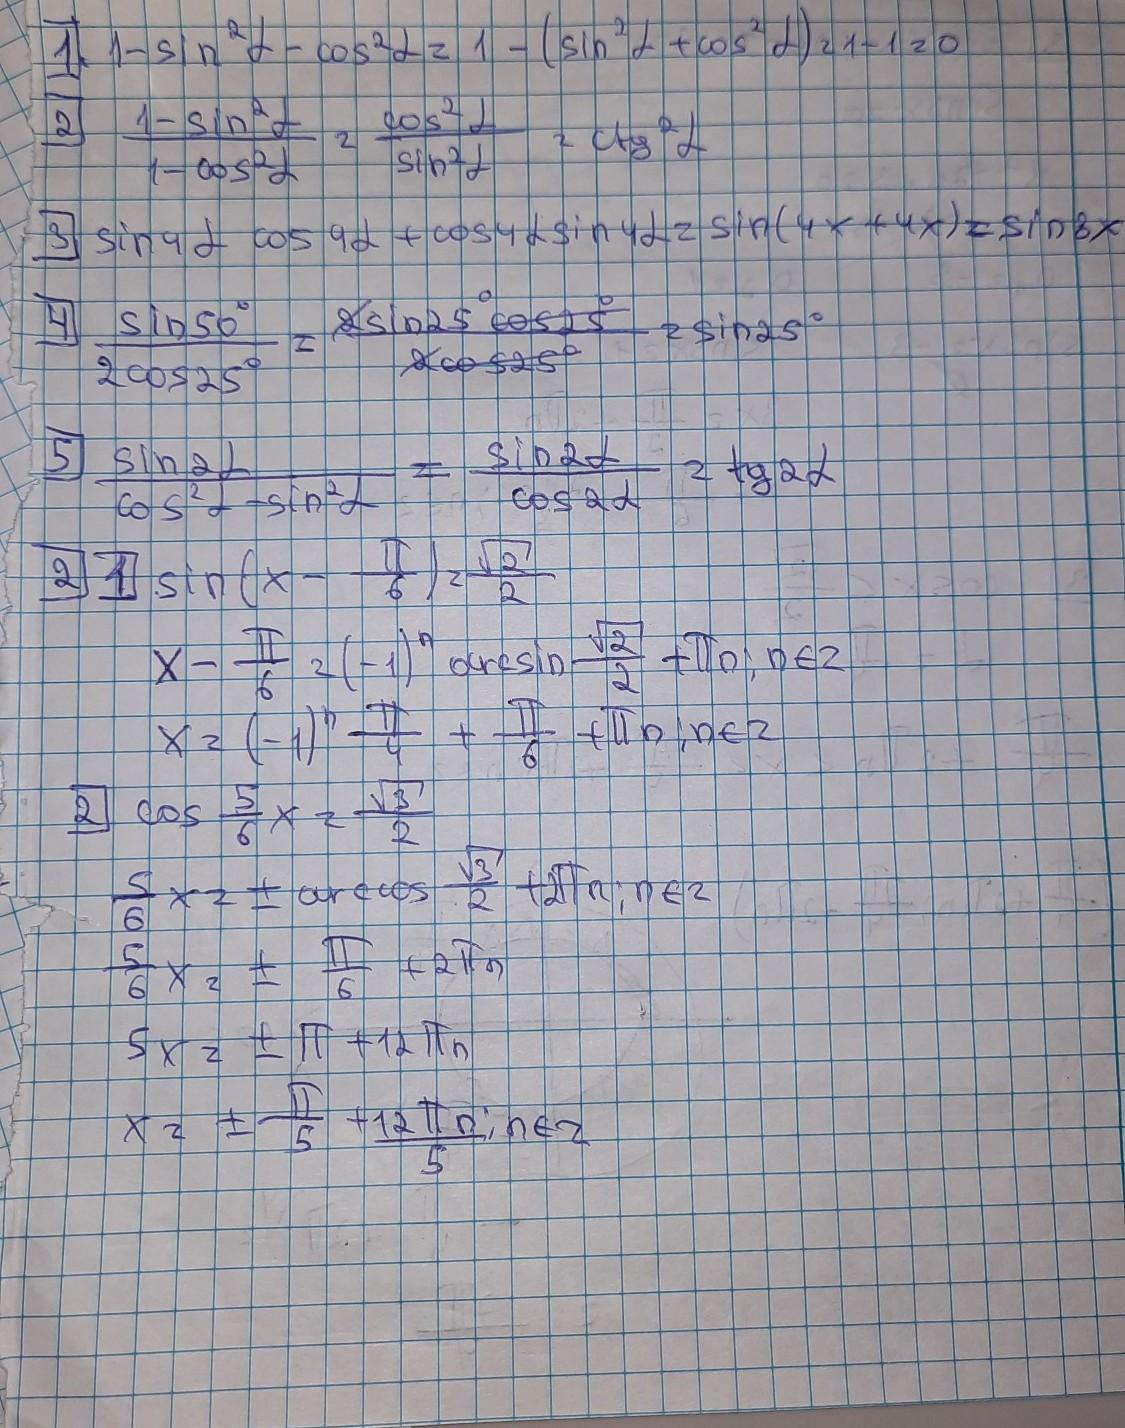 1. 1-sin²α - cos²α = 1 - (sin²α + cos²α) = 1-1 = 0
2 (1-sin²α)/(1-cos²α) = cos²α/sin²α = ctg²α
3 sin4α cos4α + cos4α sin4α = sin(4x+4x) = sin8x
4 sin50°/2cos25° = 2sin25°cos25°/2cos25° = sin25°
5 sin2α/(cos²α - sin²α) = sin2α/cos2α = tg2α
2 1 sin(x - π/6) = √2/2
x - π/6 = (-1)ⁿ arcsin √2/2 + πn; n∈Z
x = (-1)ⁿ π/4 + π/6 + πn; n∈Z
2 cos 5/6 x = √3/2
5/6 x = ± arccos √3/2 + 2πn; n∈Z
5/6 x = ± π/6 + 2πn
5x = ± π + 12πn
x = ± π/5 + 12πn/5; n∈Z